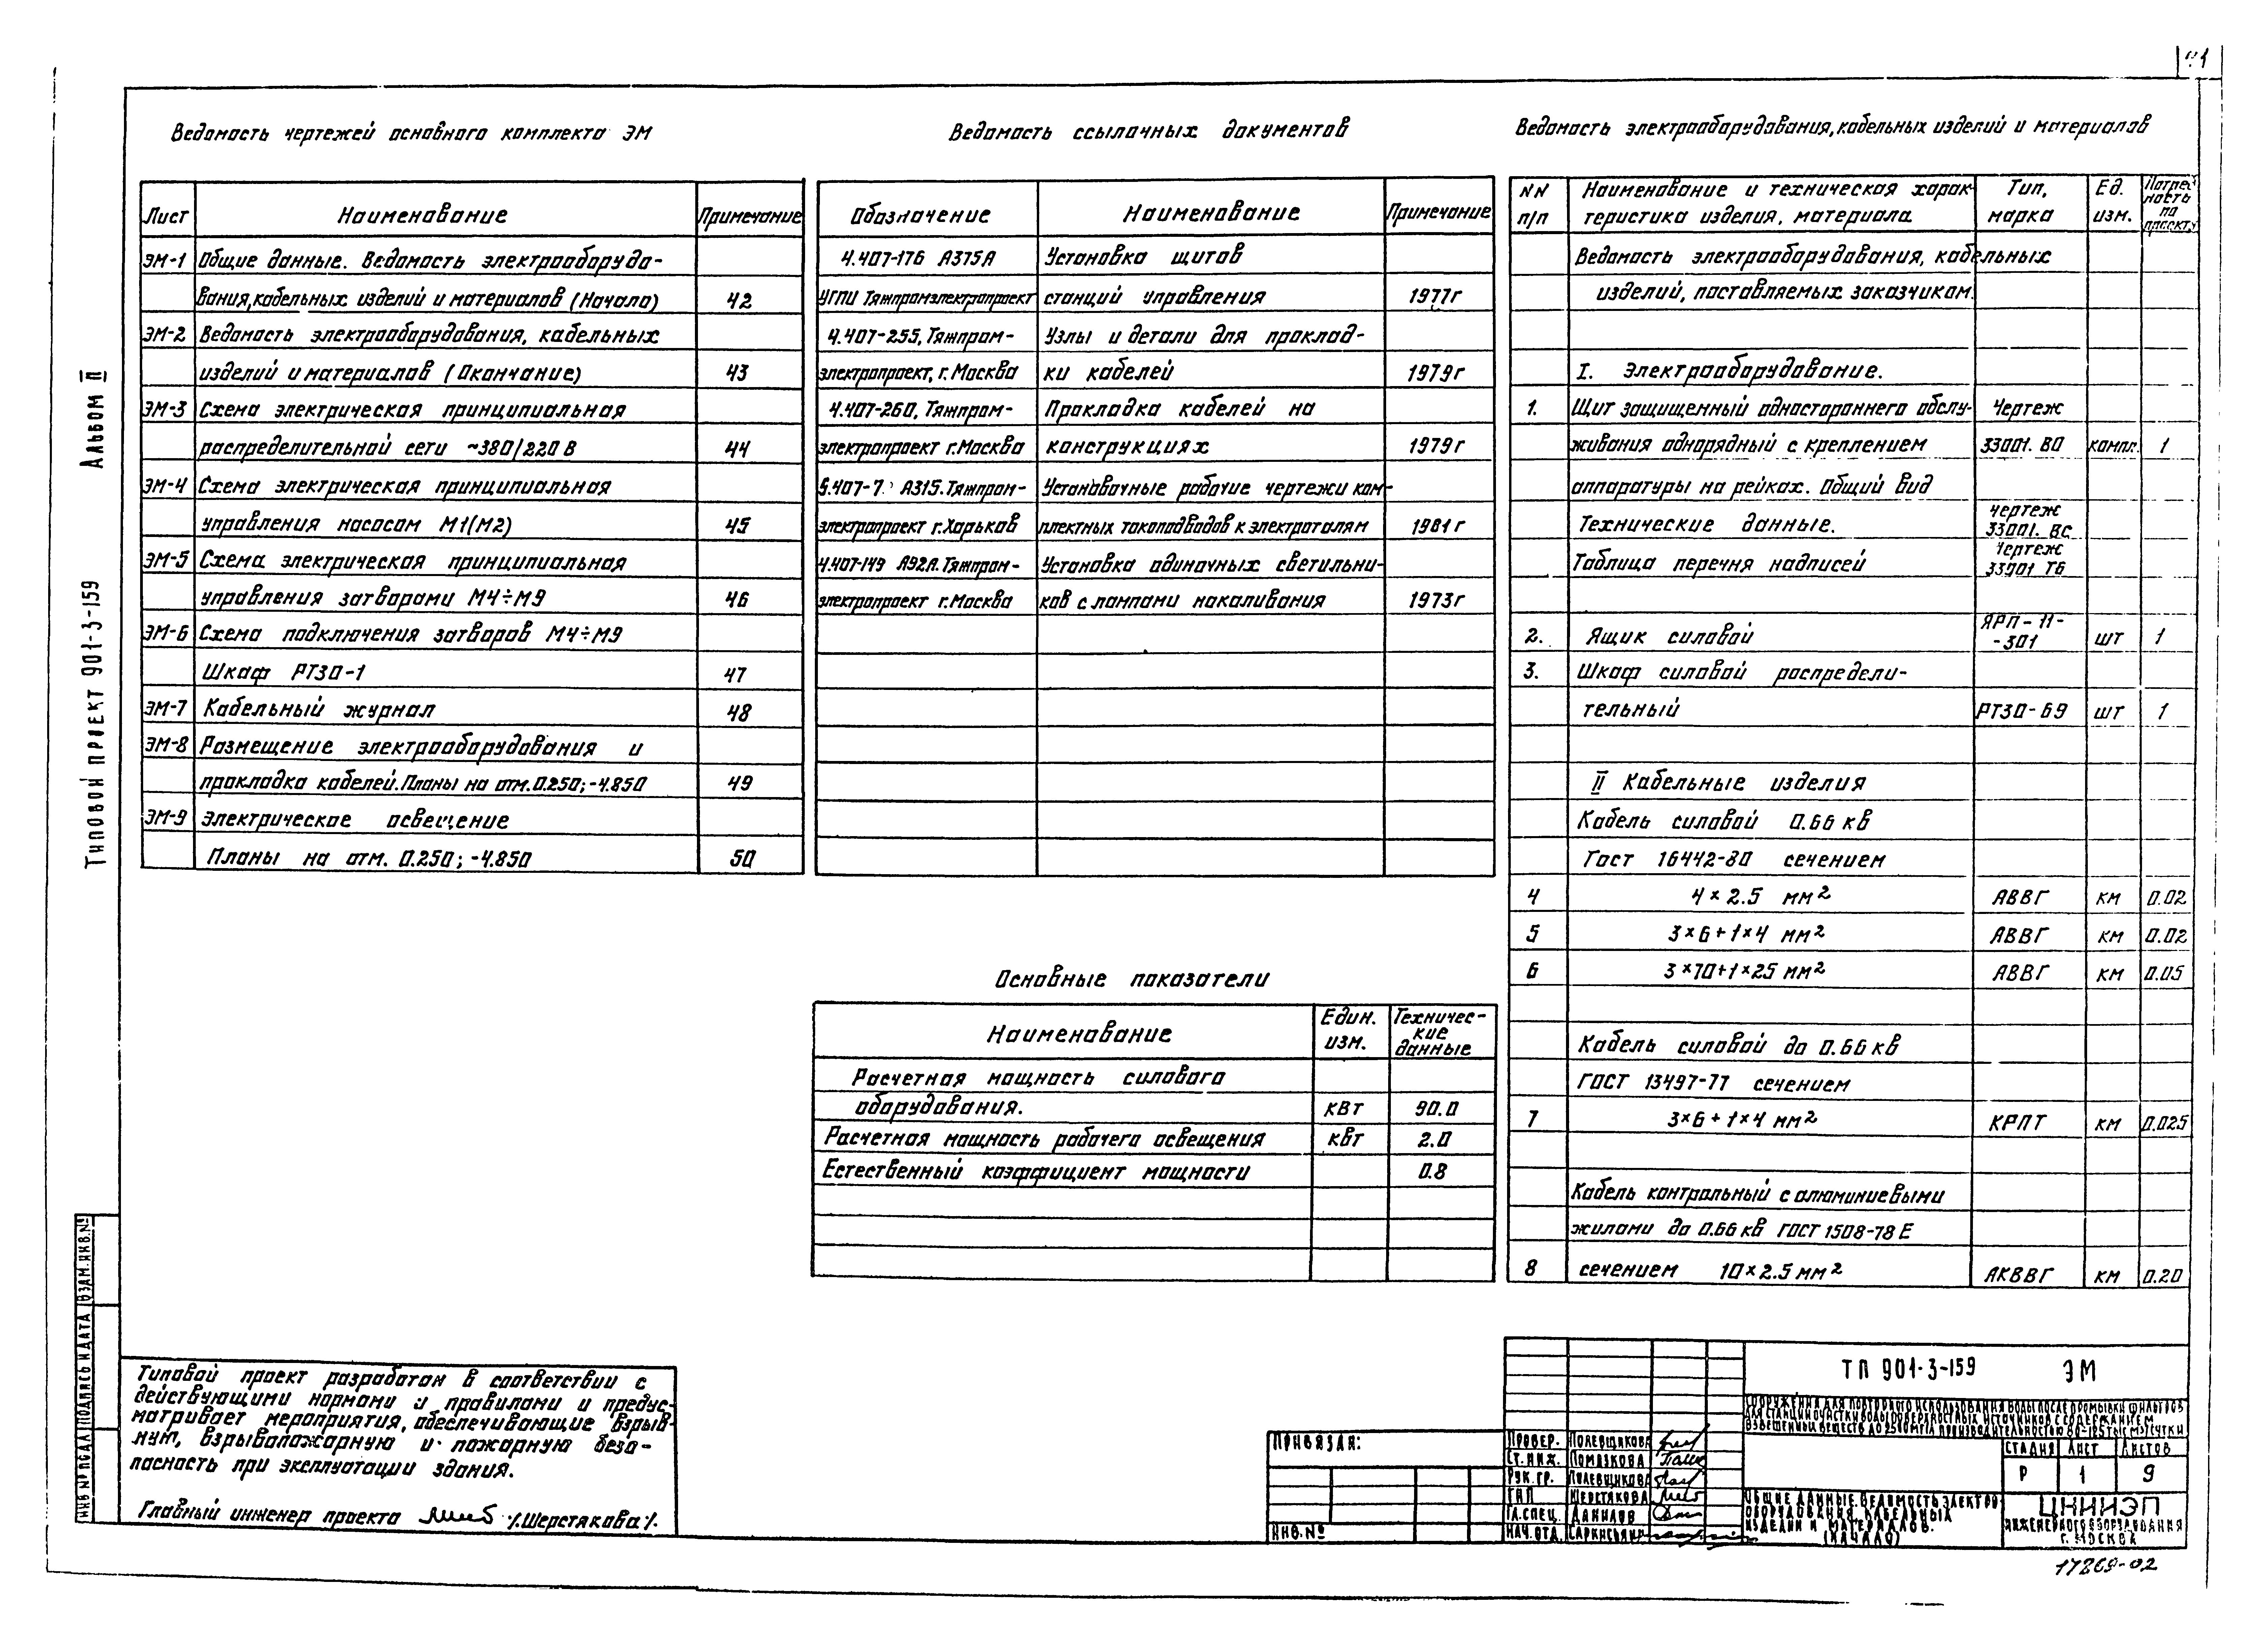 41
Альбом II
Типовой проект 901-3-159
Ведомость чертежей основного комплекта ЭМ
Лист Наименование Примечание
ЭМ-1 Общие данные. Ведомость электрооборудо-
вания, кабельных изделий и материалов (Начало) 42
ЭМ-2 Ведомость электрооборудования, кабельных
изделий и материалов (Окончание) 43
ЭМ-3 Схема электрическая принципиальная
распределительной сети ~380/220 В 44
ЭМ-4 Схема электрическая принципиальная
управления насосом М1(М2) 45
ЭМ-5 Схема электрическая принципиальная
управления затворами М4÷М9 46
ЭМ-6 Схема подключения затворов М4÷М9
Шкаф РТ30-1 47
ЭМ-7 Кабельный журнал 48
ЭМ-8 Размещение электрооборудования и
прокладка кабелей. Планы на отм. 0.250; -4.850 49
ЭМ-9 Электрическое освещение
Планы на отм. 0.250; -4.850 50
Ведомость ссылочных документов
Обозначение Наименование Примечание
4.407-176 А375А Установка щитов
УГПИ Тяжпромэлектропроект станций управления 1977г
4.407-255, Тяжпром- Узлы и детали для проклад-
электропроект, г. Москва ки кабелей 1979г
4.407-260, Тяжпром- Прокладка кабелей на
электропроект г. Москва конструкциях 1979г
5.407-7 А315. Тяжпром- Установочные рабочие чертежи ком-
электропроект г. Харьков плектных токоподводов к электроталям 1981г
4.407-149 А92А. Тяжпром- Установка одиночных светильни-
электропроект г. Москва ков с лампами накаливания 1973г
Основные показатели
Наименование Един. изм. Техничес-
кие
данные
Расчетная мощность силового
оборудования. кВт 90.0
Расчетная мощность рабочего освещения кВт 2.0
Естественный коэффициент мощности 0.8
Ведомость электрооборудования, кабельных изделий и материалов
NN Наименование и техническая харак- Тип, Ед. Потреб
п/п теристика изделия, материала марка изм. ность по проекту
Ведомость электрооборудования, кабельных
изделий, поставляемых заказчиком.
I. Электрооборудование.
1. Щит защищенный одностороннего обслу- Чертеж
живания однорядный с креплением 33001. ВО компл. 1
аппаратуры на рейках. Общий вид
Технические данные. чертеж 33001. ВС
Таблица перечня надписей Чертеж 33901 Т6
2. Ящик силовой ЯРП-11-
-301 шт 1
3. Шкаф силовой распредели-
тельный РТ30-69 шт 1
II Кабельные изделия
Кабель силовой 0.66 кв
Гост 16442-80 сечением
4 4×2.5 мм² АВВГ км 0.02
5 3×6+1×4 мм² АВВГ км 0.02
6 3×70+1×25 мм² АВВГ км 0.05
Кабель силовой до 0.66 кв
ГОСТ 13497-77 сечением
7 3×6+1×4 мм² КРПТ км 0.025
Кабель контрольный с алюминиевыми
жилами до 0.66 кв ГОСТ 1508-78 Е
8 сечением 10×2.5 мм² АКВВГ км 0.20
Типовой проект разработан в соответствии с
действующими нормами и правилами и предус-
матривает мероприятия, обеспечивающие взрыв-
ную, взрывопожарную и пожарную безо-
пасность при эксплуатации здания.
Главный инженер проекта /.Шерстякова/.
ИНВ № ПОДЛ ПОДПИСЬ И ДАТА ВЗАМ. ИНВ. №
Привязан:
ИНВ. №
Провер. Полевщикова
Ст. инж. Помазкова
Рук. гр. Полевщикова
ГИП Шерстякова
Гл. спец. Данилов
Нач. отд.
ТП 901-3-159 ЭМ
Сооружения для повторного использования воды после промывки фильтров
для станции очистки воды поверхностных источников с содержанием
взвешенных веществ до 2500 мг/л производительностью 80-125 тыс м3/сутки
Стадия Лист Листов
Р 1 9
Общие данные. Ведомость электро-
оборудования, кабельных
изделий и материалов.
(Начало)
ЦНИИЭП
инженерного оборудования
г. Москва
17869-02